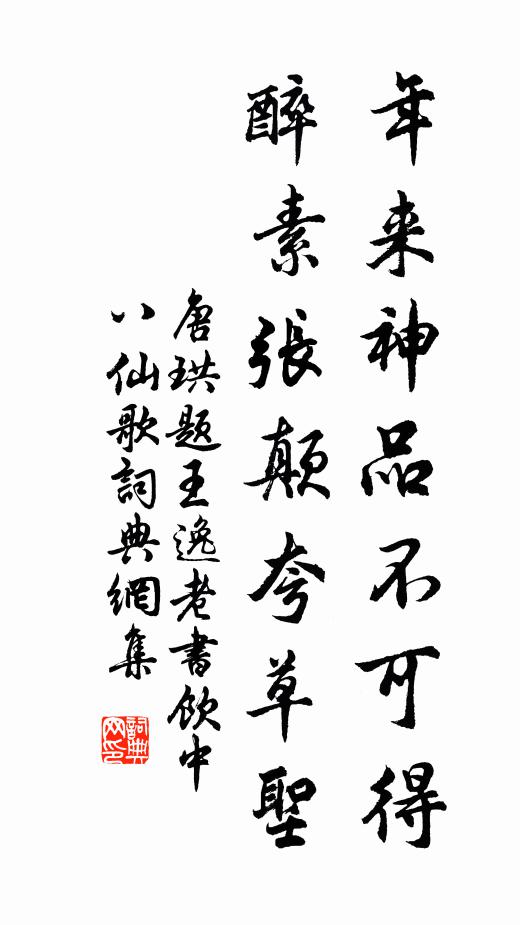 年来神品不可得
醉素張顛夸草聖
唐珙题王逸老書飲中
八仙歌詞典網集
詞典
网印